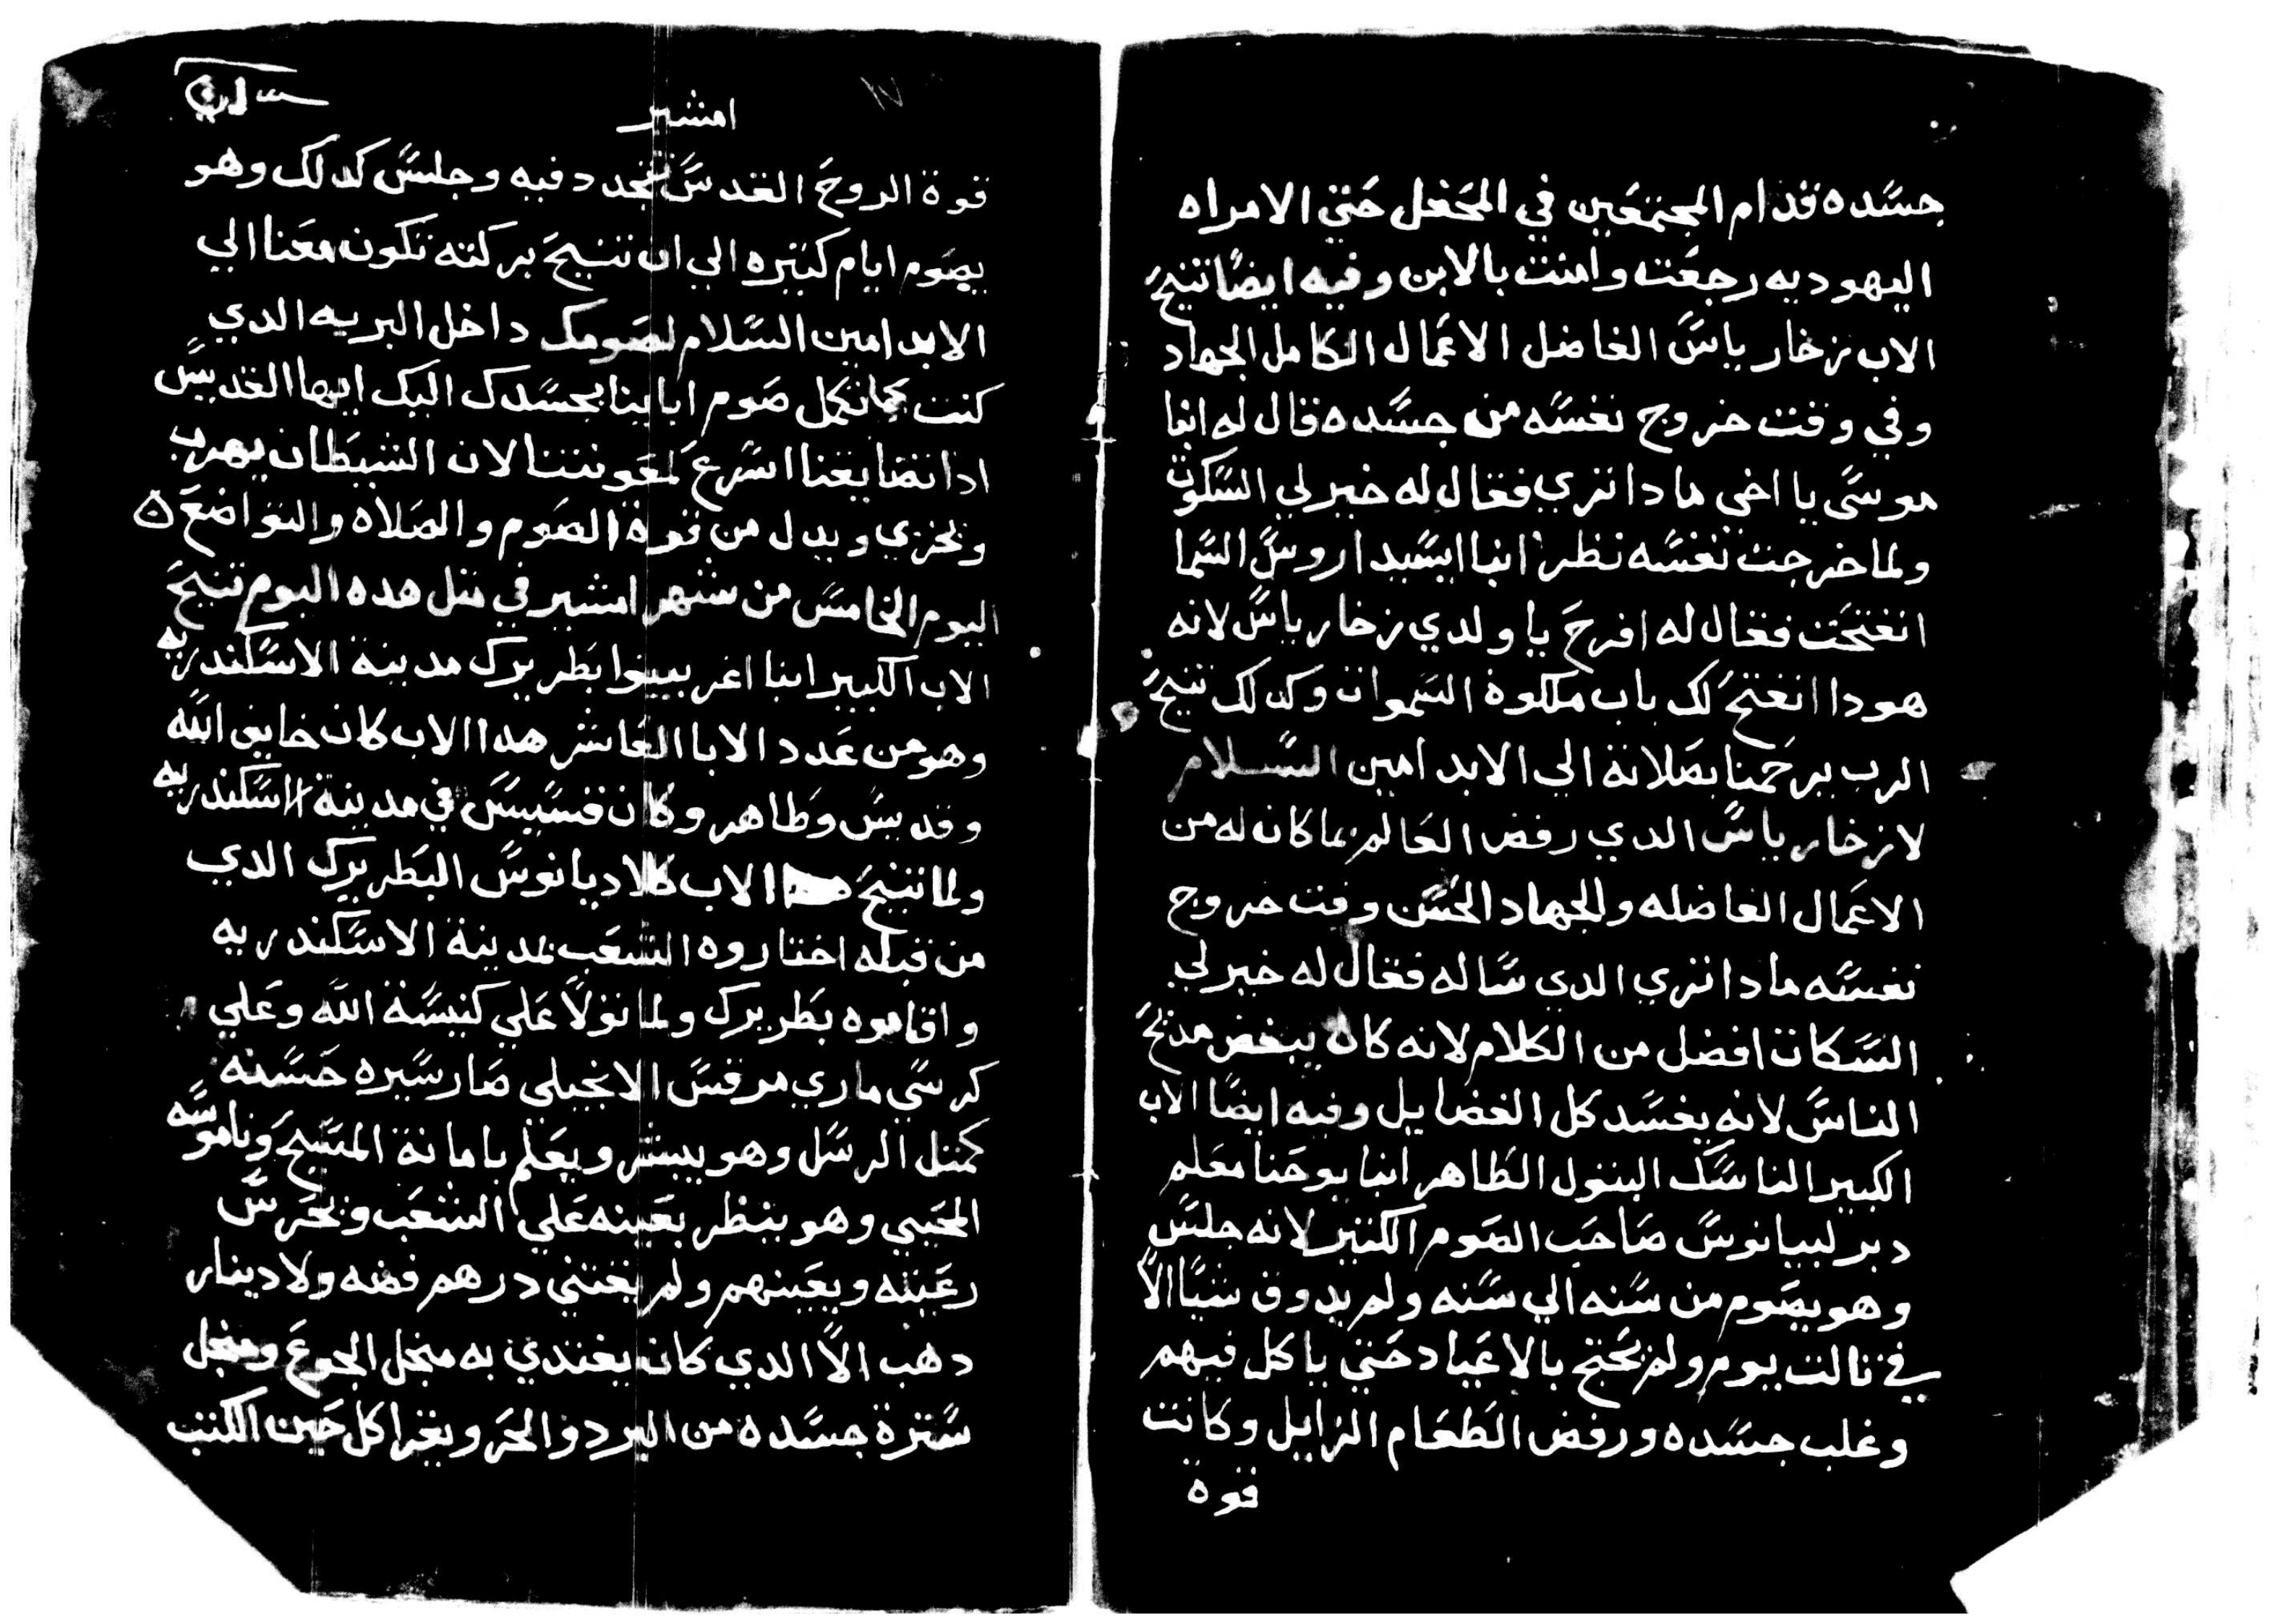 جسده قدام المجتمعين في المحفل حتي الامراه
اليهوديه رجعت وامنت بالابن وفيه ايضا تنيح
الاب زخارياس الفاضل الاعمال الكامل الجهاد
وفي وقت خروج نفسه من جسده قال له انبا
موسي يا اخي مادا تري فقال له خير لي السكوت
ولما خرجت نفسه نظر انبا ايسيداروس السما
انفتحت فقال له افرح يا ولدي زخارياس لانه
هودا انفتح لك باب ملكوة السموات وكدلك تنيح
الرب يرحمنا بصلاته الي الابد امين السلام
لازخارياس الدي رفض العالم بما كان له من
الاعمال الفاضله والجهاد الحسن وقت خروج
نفسه مادا تري الدي ساله فقال له خير لي
السكات افضل من الكلام لانه كان يبغض مدح
الناس لانه يفسد كل الفضايل وفيه ايضا الاب
الكبير الناسك البتول الطاهر انبا يوحنا معلم
دير لبيانوس صاحب الصوم الكتير لانه جلس
وهو يصوم من سنه الي سنه ولم يدوق شيا الا
في تالت يوم ولم يحتج بالاعياد حتي ياكل فيهم
وغلب جسده ورفض الطعام الزايل وكانت
قوة
امشير
قوة الروح القدس تتجدد فيه وجلس كدلك وهو
يصوم ايام كتيره الي ان تنيح بركته تكون معنا الي
الابد امين السلام لصومك داخل البريه الدي
كنت كما تكمل صوم اباينا بجسدك اليك ايها القديس
ادا تضايقنا اسرع لمعونتنا لان الشيطان يهرب
ويخزي ويدل من قوة الصوم والصلاه والتواضع ۵
اليوم الخامس من شهر امشير في متل هده اليوم تنيح
الاب الكبير انبا اغربينوا بطريرك مدينة الاسكندريه
وهو من عدد الابا العاشر هدا الاب كان خايف الله
وقديس وطاهر وكان قسيس في مدينة اسكندريه
ولما تنيح الاب كلاديانوس البطريرك الدي
من قبله اختاروه الشعب لمدينة الاسكندريه
واقاموه بطريرك ولما تولا علي كنيسة الله وعلي
كرسي ماري مرقس الانجيلي صار سيره حسنه
كمتل الرسل وهو يبشر ويعلم بامانة المسيح وناموسه
المحيي وهو ينظر بعينه علي الشعب ويحرس
رعيته ويعينهم ولم يقتني درهم فضه ولا دينار
دهب الا الدي كان يغتدي به من اجل الجوع ومن اجل
سترة جسده من البرد والحر ويقرا كل حين الكتب